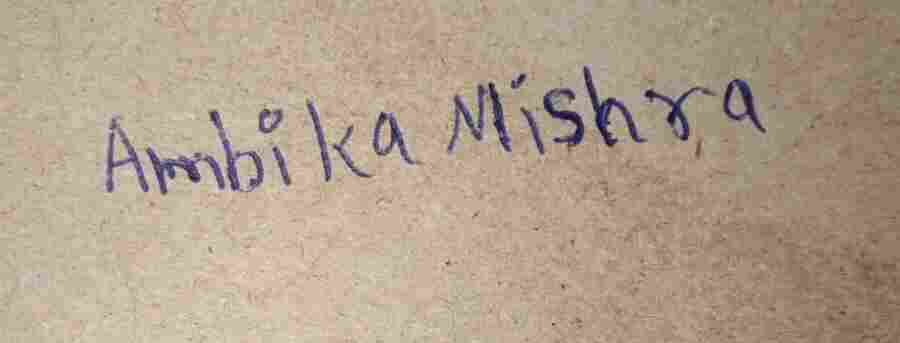 Ambika Mishra